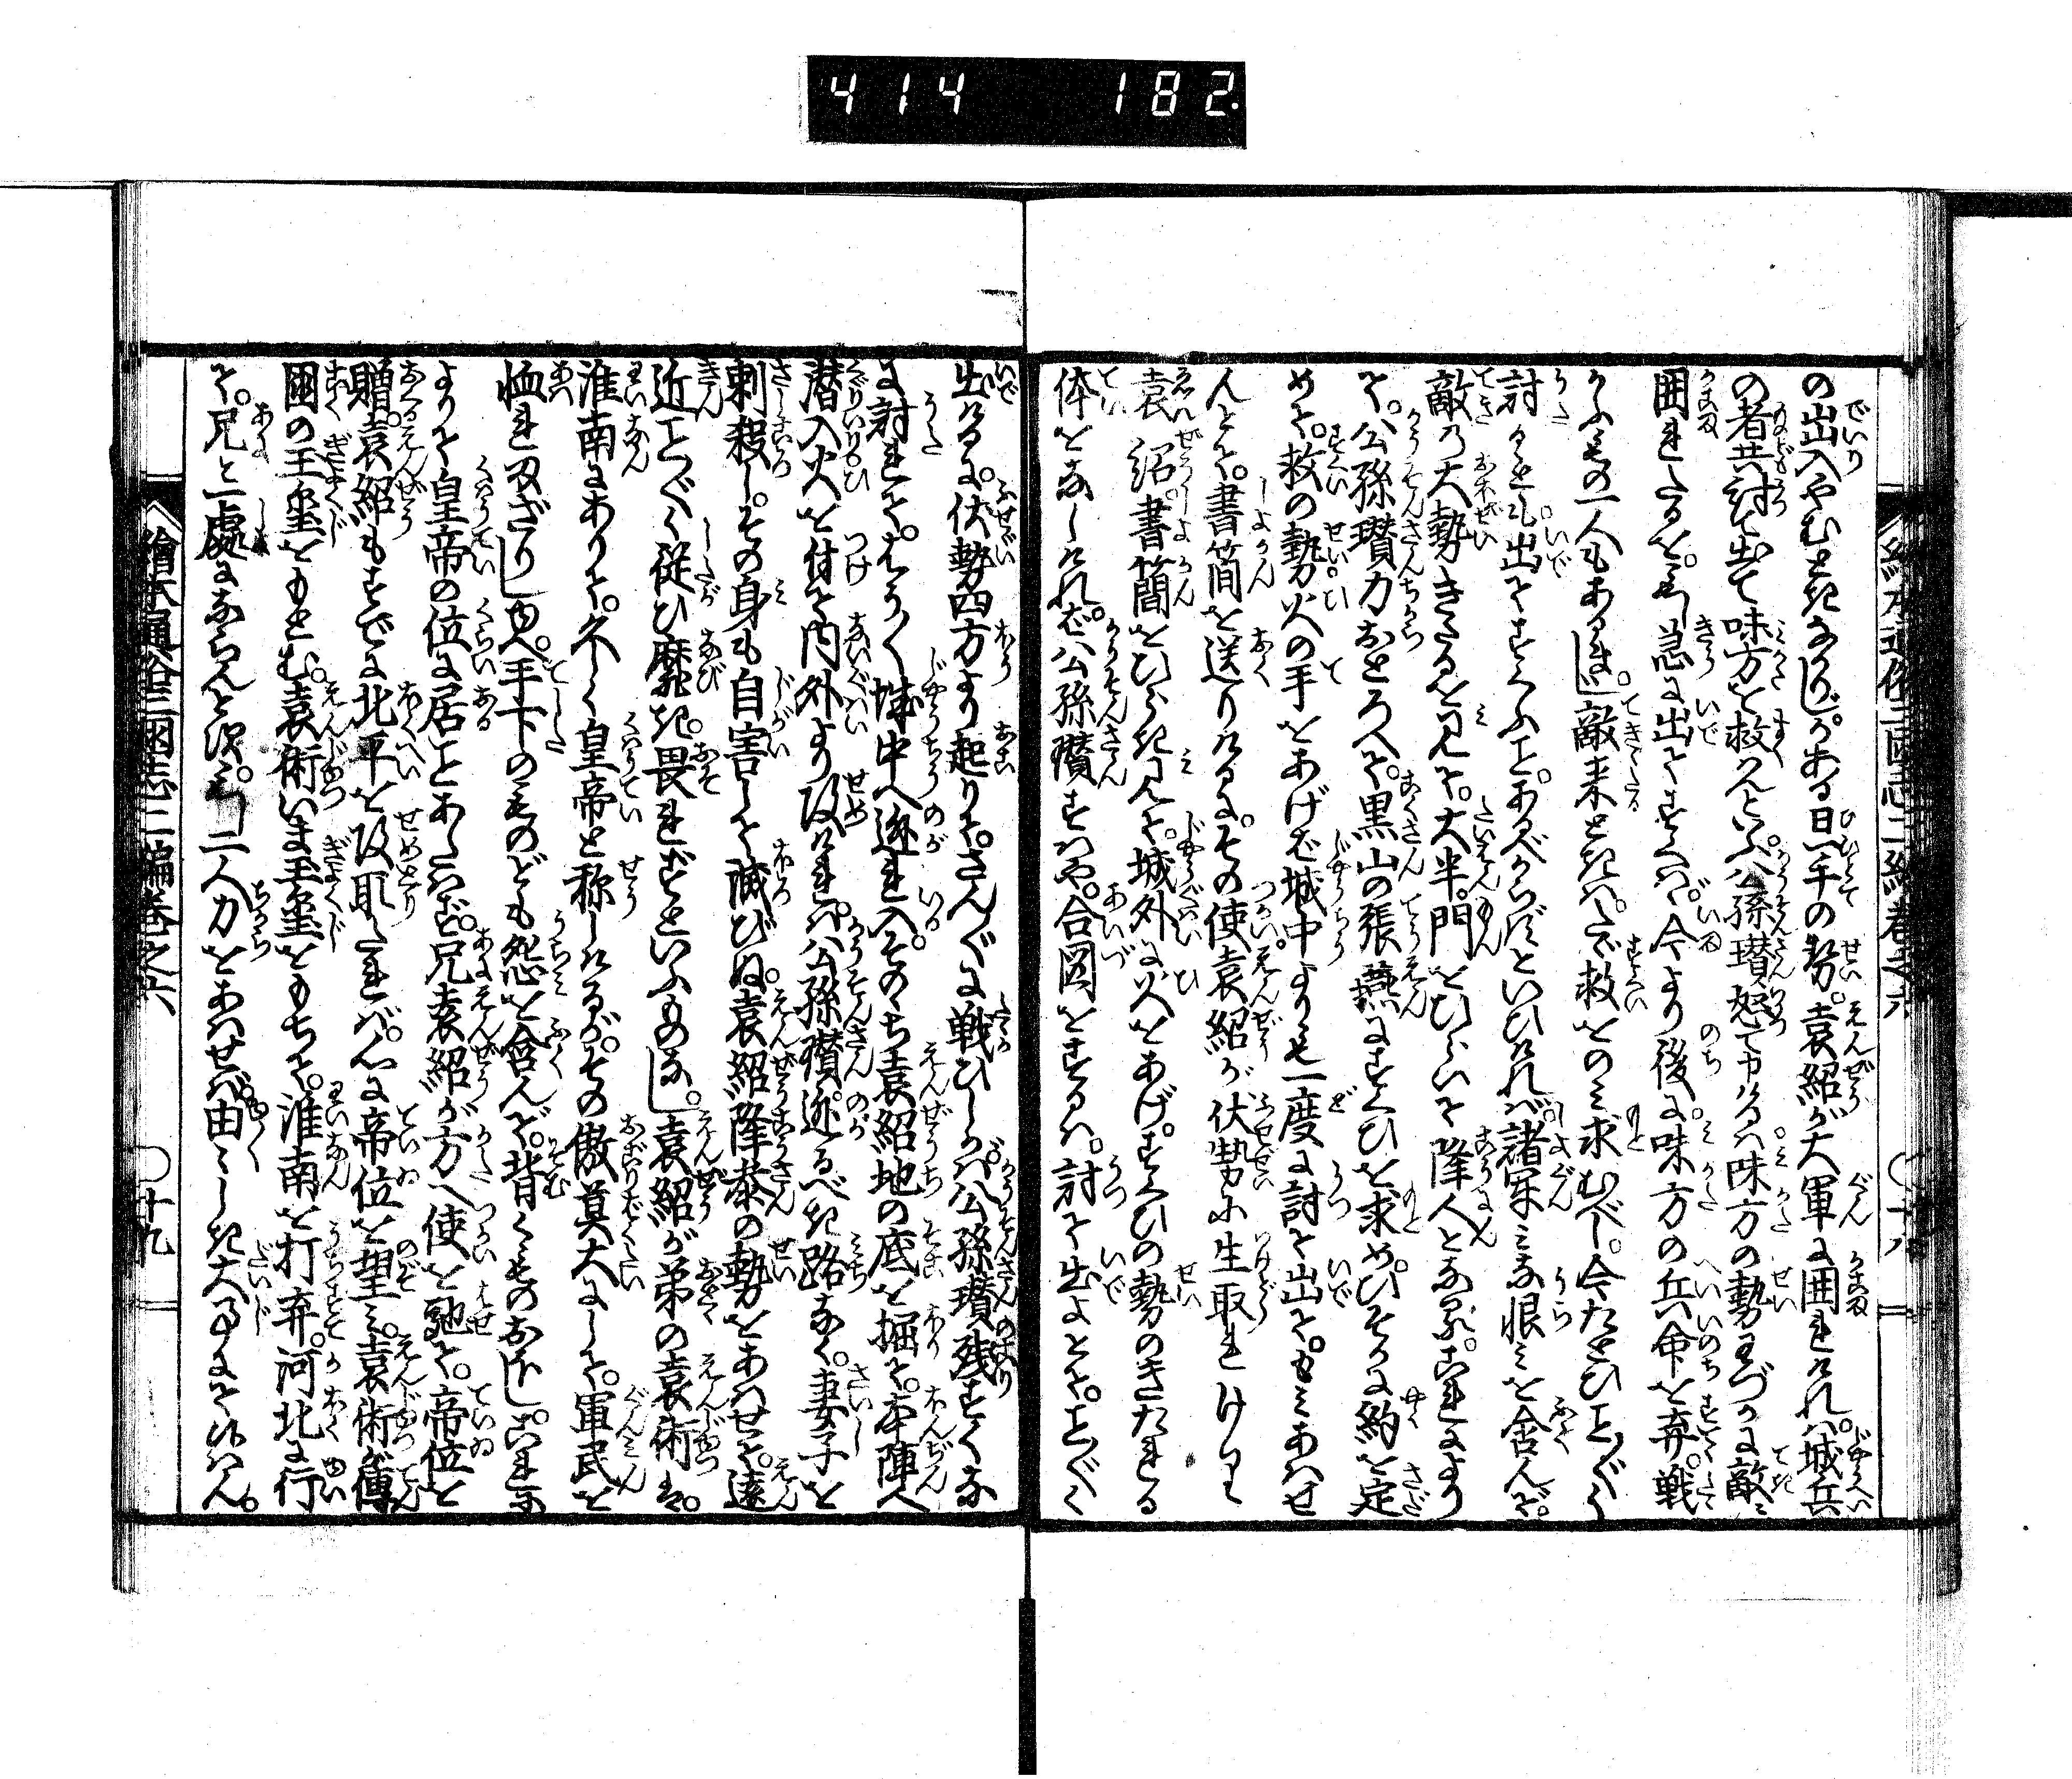 414 182
の出入やむときなかりしがある日一手の勢袁紹が大軍に囲れければ城兵
の者共討て出て味方を救んといふ公孫瓚怒て申けるは味方の勢わづかに敵に
囲れたるをもし急に出てすくはゞ今より後に味方の兵命を弃戦
かふもの一人もあるまじ敵来ときはたゞ救をのみ求むべし今たとひことごとく
討るゝとも出てすくふことあるべからずといひければ諸軍みな恨みを含んで
敵の大勢きたるを見て大半門をひらいて降人となるこれより
て公孫瓚力おとろへて黒山の張燕にすくひを求めひそかに約を定
めて救の勢火の手をあげば城中よりも一度に討て出てもみあはせ
んとて書簡を送りけるにその使袁紹が伏勢に生取れけり
袁紹書簡をひらき見て城外に火をあげすくひの勢のきたれる
体をなしければ公孫瓚すはや合図をするは討て出よとてことごとく
繪本通俗三國志二編卷之六 〇十八
出けるに伏勢四方より起りてさんざんに戦ひしかば公孫瓚残すくな
に討れてやうやく城中へ逃れ入そのゝち袁紹地の底を掘て本陣へ
潜入火を付て内外より攻ければ公孫瓚逃るべき路なく妻子を
刺殺しその身も自害して滅びぬ袁紹降参の勢をあはせて遠
近ことごとく従ひ靡き畏れずといふものなし袁紹が弟の袁術は
淮南にありて久しく皇帝と称しけるがその傲莫大にして軍民を
恤れまざりしゆへ手下のものども怨を含んで背くものおほしこれに
よりて皇帝の位に居ことあたはず兄袁紹が方へ使を馳て帝位を
贈袁紹もすでに北平を攻取たれば心に帝位を望み袁術傳
國の玉璽をもとむ袁術いま玉璽をもちて淮南を打弃河北に行
て兄と一處にならんとすもし二人力をあはせば由々しき大事にて候はん
繪本通俗三國志二編卷之六 〇十九